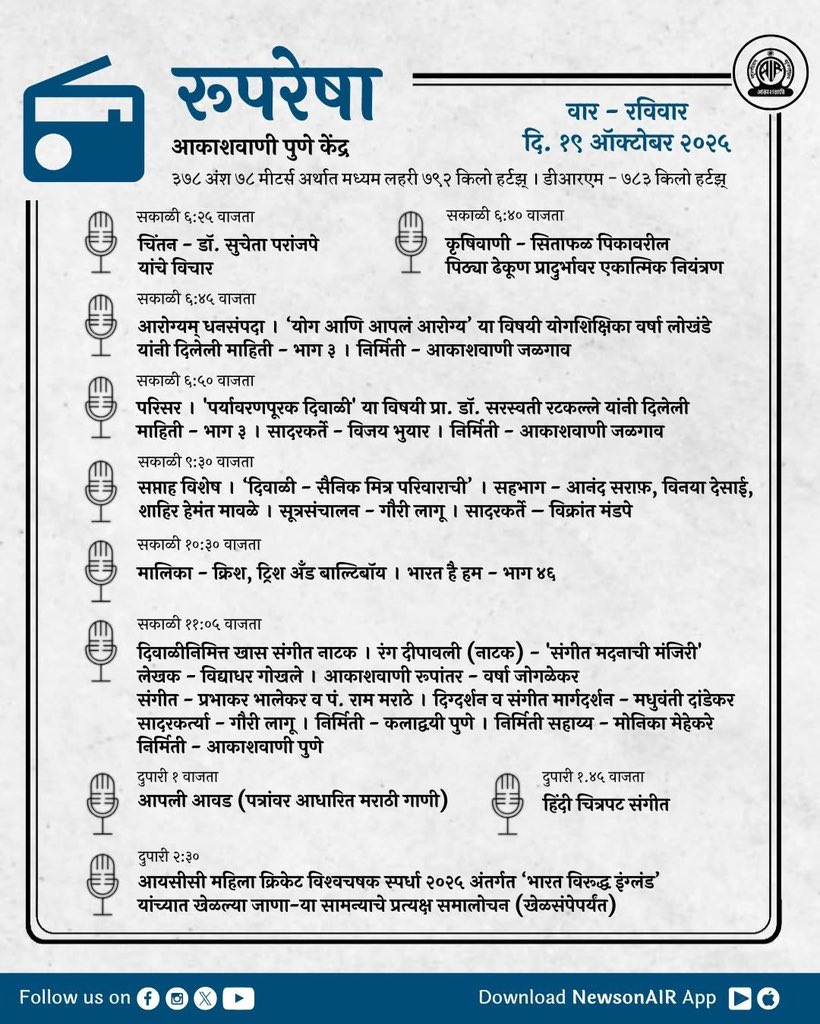 रुपरेषा
आकाशवाणी
वार - रविवार
दि. १९ ऑक्टोबर २०२५
आकाशवाणी पुणे केंद्र
३७८ अंश ७८ मीटर्स अर्थात मध्यम लहरी ७९२ किलो हर्टझ् । डीआरएम - ७८३ किलो हर्टझ्
सकाळी ६:२५ वाजता
चिंतन - डॉ. सुचेता परांजपे
यांचे विचार
सकाळी ६:४० वाजता
कृषिवाणी - सिताफळ पिकावरील
पिठ्या ढेकूण प्रादुर्भावर एकात्मिक नियंत्रण
सकाळी ६:४५ वाजता
आरोग्यम् धनसंपदा । ‘योग आणि आपलं आरोग्य’ या विषयी योगशिक्षिका वर्षा लोखंडे
यांनी दिलेली माहिती - भाग ३ । निर्मिती - आकाशवाणी जळगाव
सकाळी ६:५० वाजता
परिसर । 'पर्यावरणपूरक दिवाळी' या विषयी प्रा. डॉ. सरस्वती रटकल्ले यांनी दिलेली
माहिती - भाग ३ । सादरकर्ते - विजय भुयार । निर्मिती - आकाशवाणी जळगाव
सकाळी ९:३० वाजता
सप्ताह विशेष । ‘दिवाळी - सैनिक मित्र परिवाराची’ । सहभाग - आनंद सराफ़, विनया देसाई,
शाहिर हेमंत मावळे । सूत्रसंचालन - गौरी लागू । सादरकर्ते – विक्रांत मंडपे
सकाळी १०:३० वाजता
मालिका - क्रिश, ट्रिश अँड बाल्टिबॉय । भारत है हम - भाग ४६
सकाळी ११:०५ वाजता
दिवाळीनिमित्त खास संगीत नाटक । रंग दीपावली (नाटक) - 'संगीत मदनाची मंजिरी'
लेखक - विद्याधर गोखले । आकाशवाणी रुपांतर - वर्षा जोगळेकर
संगीत - प्रभाकर भालेकर व पं. राम मराठे । दिग्दर्शन व संगीत मार्गदर्शन - मधुवंती दांडेकर
सादरकर्त्या - गौरी लागू । निर्मिती - कलाद्वयी पुणे । निर्मिती सहाय्य - मोनिका मेहेकरे
निर्मिती - आकाशवाणी पुणे
दुपारी १ वाजता
आपली आवड (पत्रांवर आधारित मराठी गाणी)
दुपारी १.४५ वाजता
हिंदी चित्रपट संगीत
दुपारी २:३०
आयसीसी महिला क्रिकेट विश्वचषक स्पर्धा २०२५ अंतर्गत ‘भारत विरुद्ध इंग्लंड’
यांच्यात खेळल्या जाणा-या सामन्याचे प्रत्यक्ष समालोचन (खेळसंपेपर्यंत)
Follow us on
Download NewsonAIR App